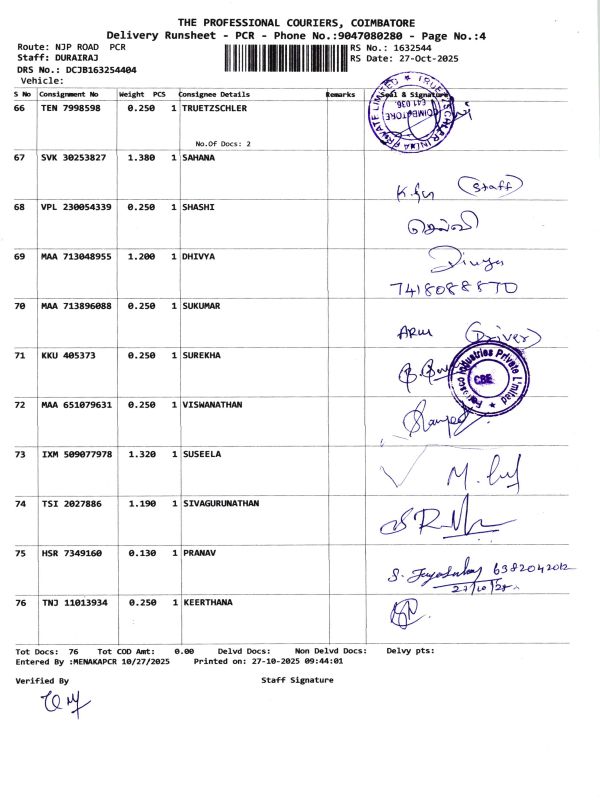 THE PROFESSIONAL COURIERS, COIMBATORE
Delivery Runsheet - PCR - Phone No.:9047080280 - Page No.:4
Route: NJP ROAD PCR
RS No.: 1632544
Staff: DURAIRAJ
RS Date: 27-Oct-2025
DRS No.: DCJB163254404
Vehicle:
S No Consignment No Weight PCS Consignee Details Remarks Seal & Signature
66 TEN 7998598 0.250 1 TRUETZSCHLER
No.Of Docs: 2
COIMBATORE
641 036.
67 SVK 30253827 1.380 1 SAHANA
(Staff)
68 VPL 230054339 0.250 1 SHASHI
செல்வி
69 MAA 713048955 1.200 1 DHIVYA
Divya
70 MAA 713896088 0.250 1 SUKUMAR
(Driver)
71 KKU 405373 0.250 1 SUREKHA
Industries Private Limited
CBE
72 MAA 651079631 0.250 1 VISWANATHAN
73 IXM 509077978 1.320 1 SUSEELA
74 TSI 2027886 1.190 1 SIVAGURUNATHAN
75 HSR 7349160 0.130 1 PRANAV
6382042012
76 TNJ 11013934 0.250 1 KEERTHANA
Tot Docs: 76 Tot COD Amt: 0.00 Delvd Docs: Non Delvd Docs: Delvy pts:
Entered By :MENAKAPCR 10/27/2025 Printed on: 27-10-2025 09:44:01
Verified By Staff Signature